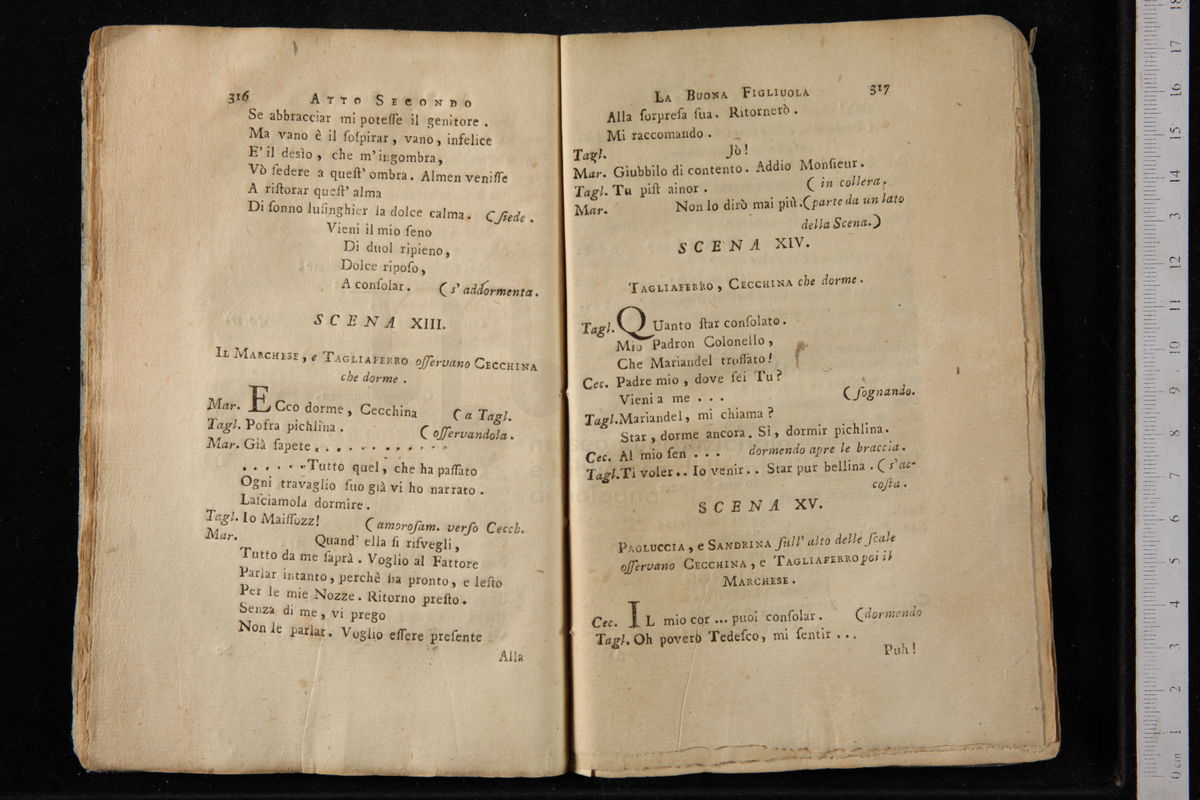 316 ATTO SECONDO
Se abbracciar mi poteſſe il genitore.
Ma vano è il ſoſpirar, vano, infelice
E' il desìo, che m'ingombra,
Vò ſedere a queſt' ombra. Almen veniſſe
A riſtorar queſt' alma
Di ſonno luſinghier la dolce calma. (ſiede.
Vieni il mio ſeno
Di duol ripieno,
Dolce ripoſo,
A conſolar. (s' addormenta.
SCENA XIII.
IL MARCHESE, e TAGLIAFERRO oſſervano CECCHINA
che dorme.
Mar. ECco dorme, Cecchina (a Tagl.
Tagl. Pofra pichlina. (oſſervandola.
Mar. Già ſapete . . . . . . . . . . .
. . . . . . Tutto quel, che ha paſſato
Ogni travaglio ſuo già vi ho narrato.
Laſciamola dormire.
Tagl. Io Maiſſozz! (amoroſam. verſo Cecch.
Mar. Quand' ella ſi riſvegli,
Tutto da me ſaprà. Voglio al Fattore
Parlar intanto, perchè ha pronto, e leſto
Per le mie Nozze. Ritorno preſto.
Senza di me, vi prego
Non le parlar. Voglio eſſere preſente
Alla
LA BUONA FIGLIUOLA 317
Alla ſorpreſa ſua. Ritornerò.
Mi raccomando.
Tagl. Jò!
Mar. Giubbilo di contento. Addio Monſieur.
Tagl. Tu piſt ainor. (in collera.
Mar. Non lo dirò mai più. (parte da un lato
della Scena.)
SCENA XIV.
TAGLIAFERRO, CECCHINA che dorme.
Tagl. QUanto ſtar conſolato.
Mio Padron Colonello,
Che Mariandel troſſato!
Cec. Padre mio, dove ſei Tu?
Vieni a me . . . (ſognando.
Tagl. Mariandel, mi chiama?
Star, dorme ancora. Sì, dormir pichlina.
Cec. Al mio ſen . . . dormendo apre le braccia.
Tagl. Ti voler.. Io venir.. Star pur bellina. (s'ac-
coſta.
SCENA XV.
PAOLUCCIA, e SANDRINA ſull' alto delle ſcale
oſſervano CECCHINA, e TAGLIAFERRO poi il
MARCHESE.
Cec. IL mio cor ... puoi conſolar. (dormendo
Tagl. Oh poverò Tedeſco, mi ſentir ...
Puh!